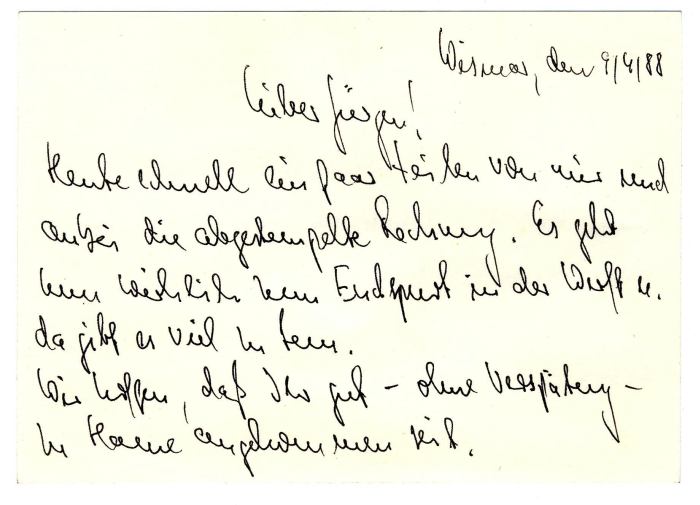 Wismar, den 9/4/88
Lieber Jürgen!
Heute schnell ein paar Zeilen von mir und
anbei die abgestempelte Rechnung. Es geht
nun wirklich zum Endspurt in der Werft u.
da gibt es viel zu tun.
Wir hoffen, daß Ihr gut – ohne Verspätung –
zu Hause angekommen seit.